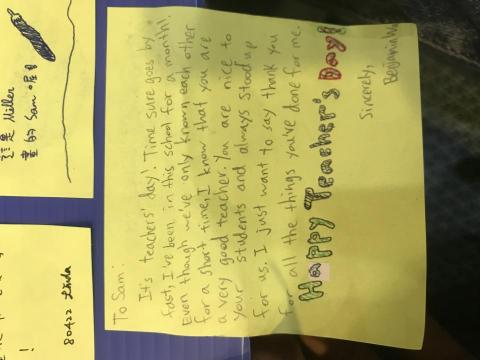 這是 Miller
畫的 Sam 喔!
To Sam:
It's teachers' day! Time sure goes by
fast, I've been in this school for a month!
Even though we've only known each other
for a short time, I know that you are
a very good teacher. You are nice to
your students and always stood up
for us. I just want to say thank you
for all the things you've done for me.
HAPPY Teacher's Day!
Sincerely,
Benjamin
!
80422 Linda